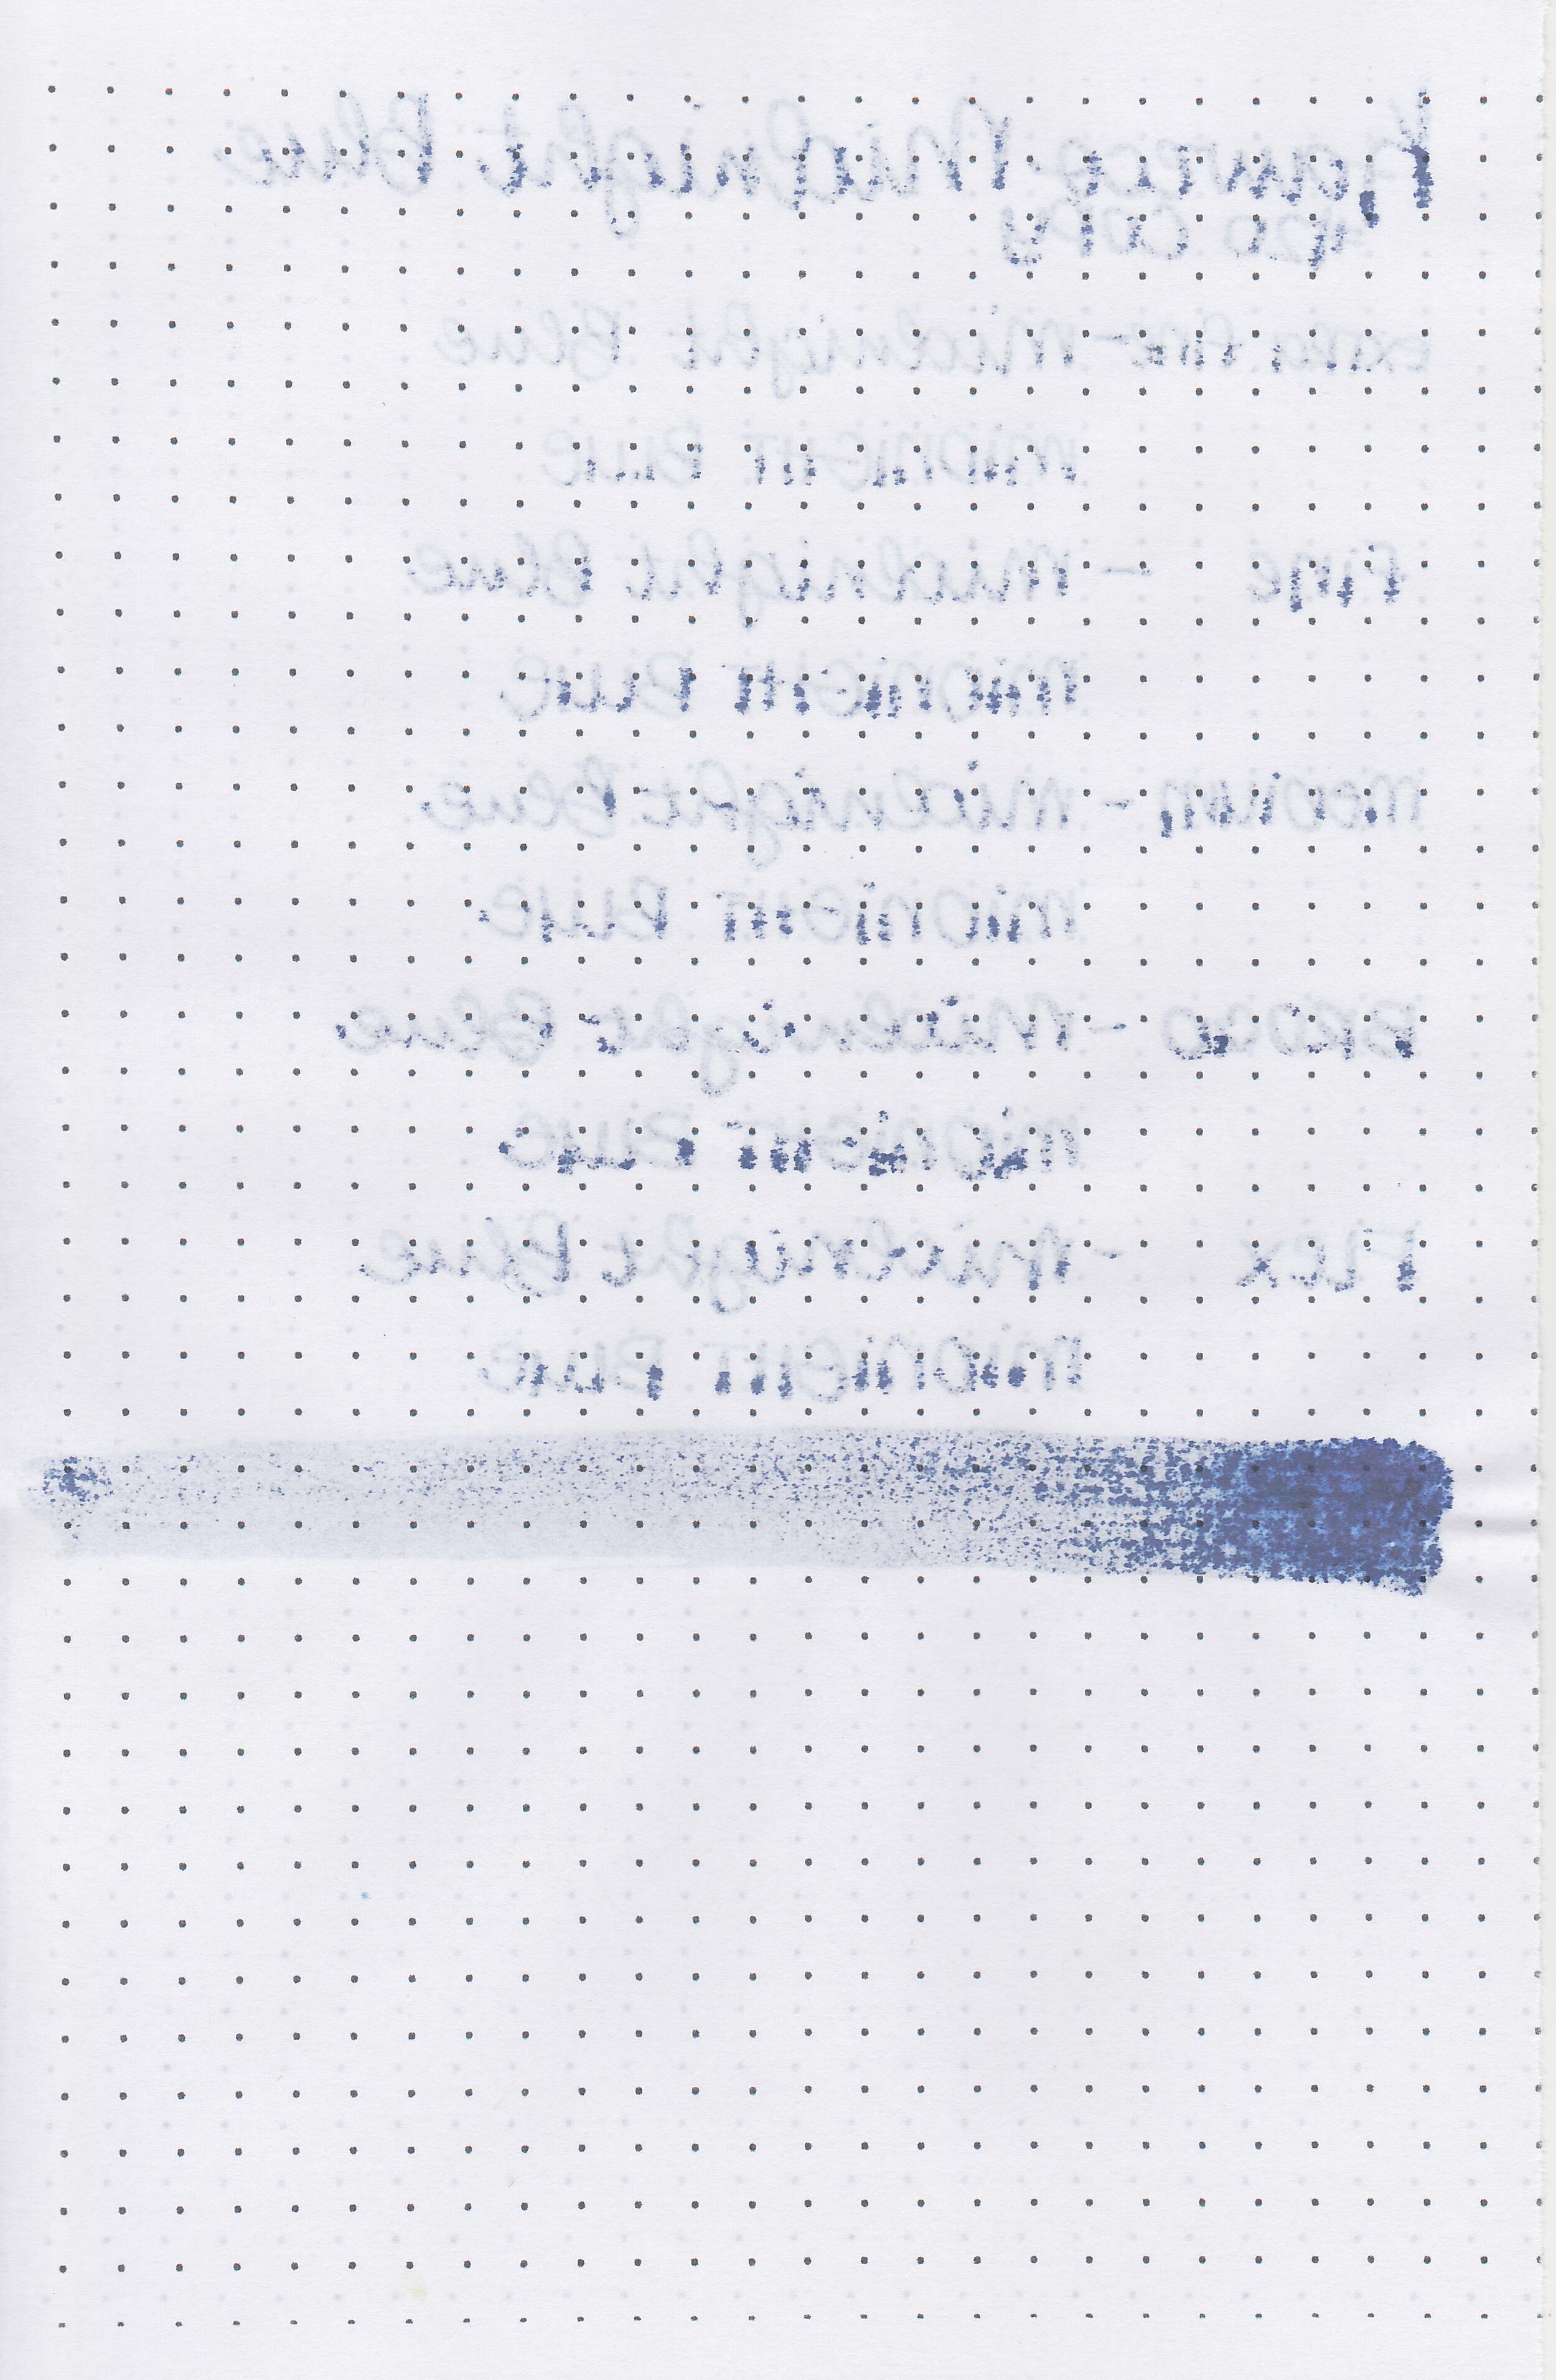 Kaweco Midnight Blue
H20 COPY
extra fine - Midnight Blue
MIDNIGHT BLUE
fine - Midnight Blue
MIDNIGHT BLUE
MEDIUM - Midnight Blue
MIDNIGHT BLUE
BROAD - Midnight Blue
MIDNIGHT BLUE
FLEX - Midnight Blue
MIDNIGHT BLUE